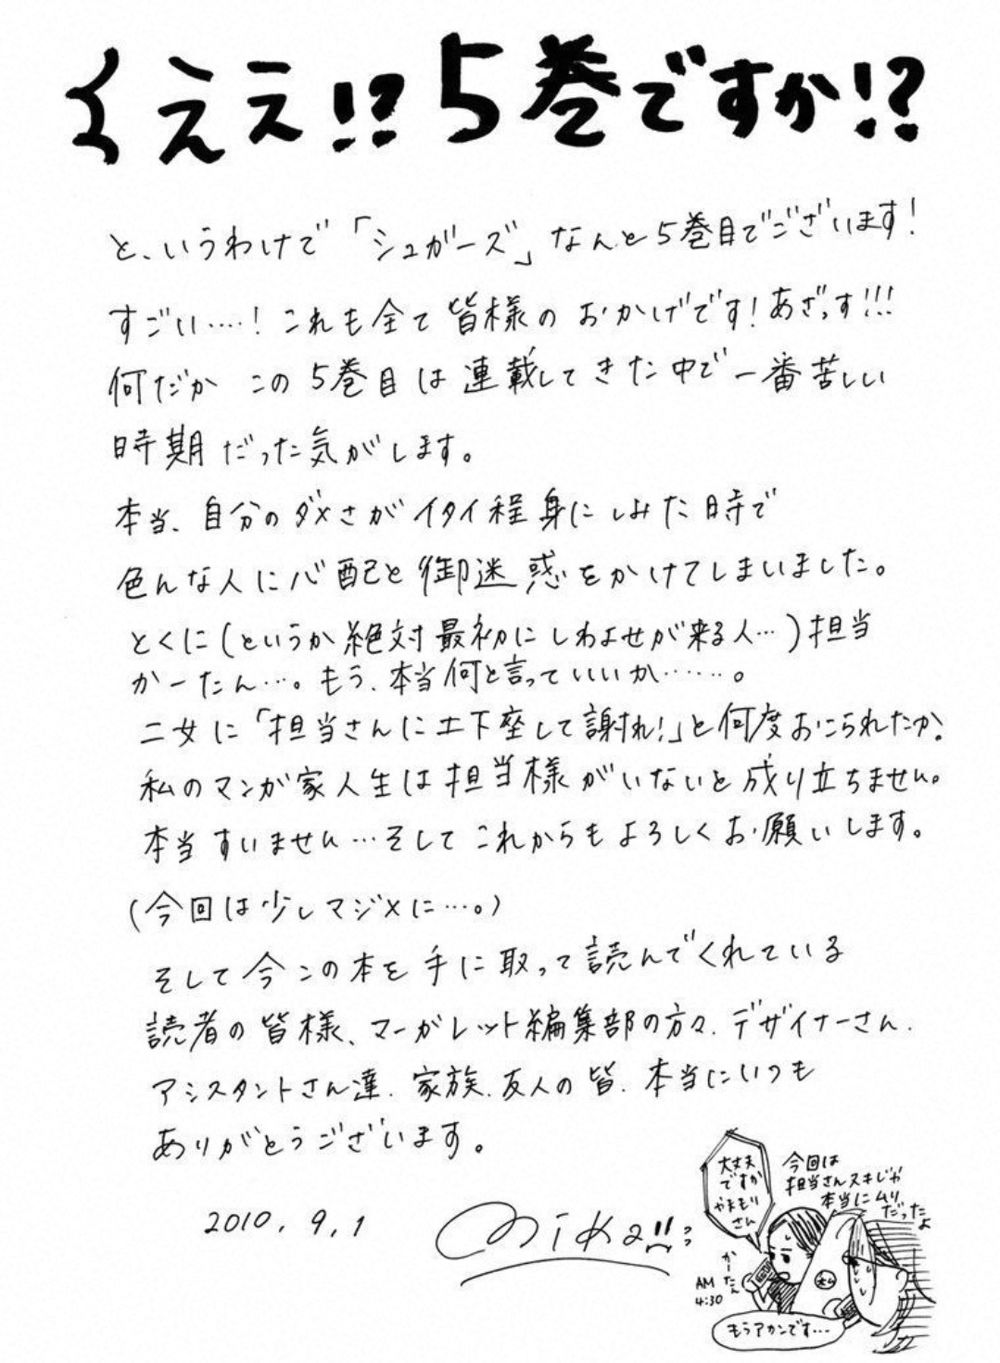 くええ!? 5巻ですか!?
と、いうわけで「シュガーズ」なんと5巻目でございます!
すごい‥‥! これも全て皆様のおかげです! あざっす!!!
何だか この5巻目は連載してきた中で一番苦しい
時期だった気がします。
本当、自分のダメさがイタイ程身にしみた時で
色んな人に心配と御迷惑をかけてしまいました。
とくに(というか絶対最初にしわよせが来る人…)担当
かーたん…。もう、本当何と言っていいか……。
二女に「担当さんに土下座して謝れ!」と何度おこられたか。
私のマンガ家人生は担当様がいないと成り立ちません。
本当すいません…そしてこれからもよろしくお願いします。
(今回は少しマジメに…。)
そして今この本を手に取って読んでくれている
読者の皆様、マーガレット編集部の方々、デザイナーさん、
アシスタントさん達、家族、友人の皆、本当にいつも
ありがとうございます。
2010. 9. 1
Mika
大丈夫
ですか
やまもり
さん
今回は
担当さんヌキじゃ
本当にムリ
だったよ
かーたん
AM
4:30
もうアカンです…